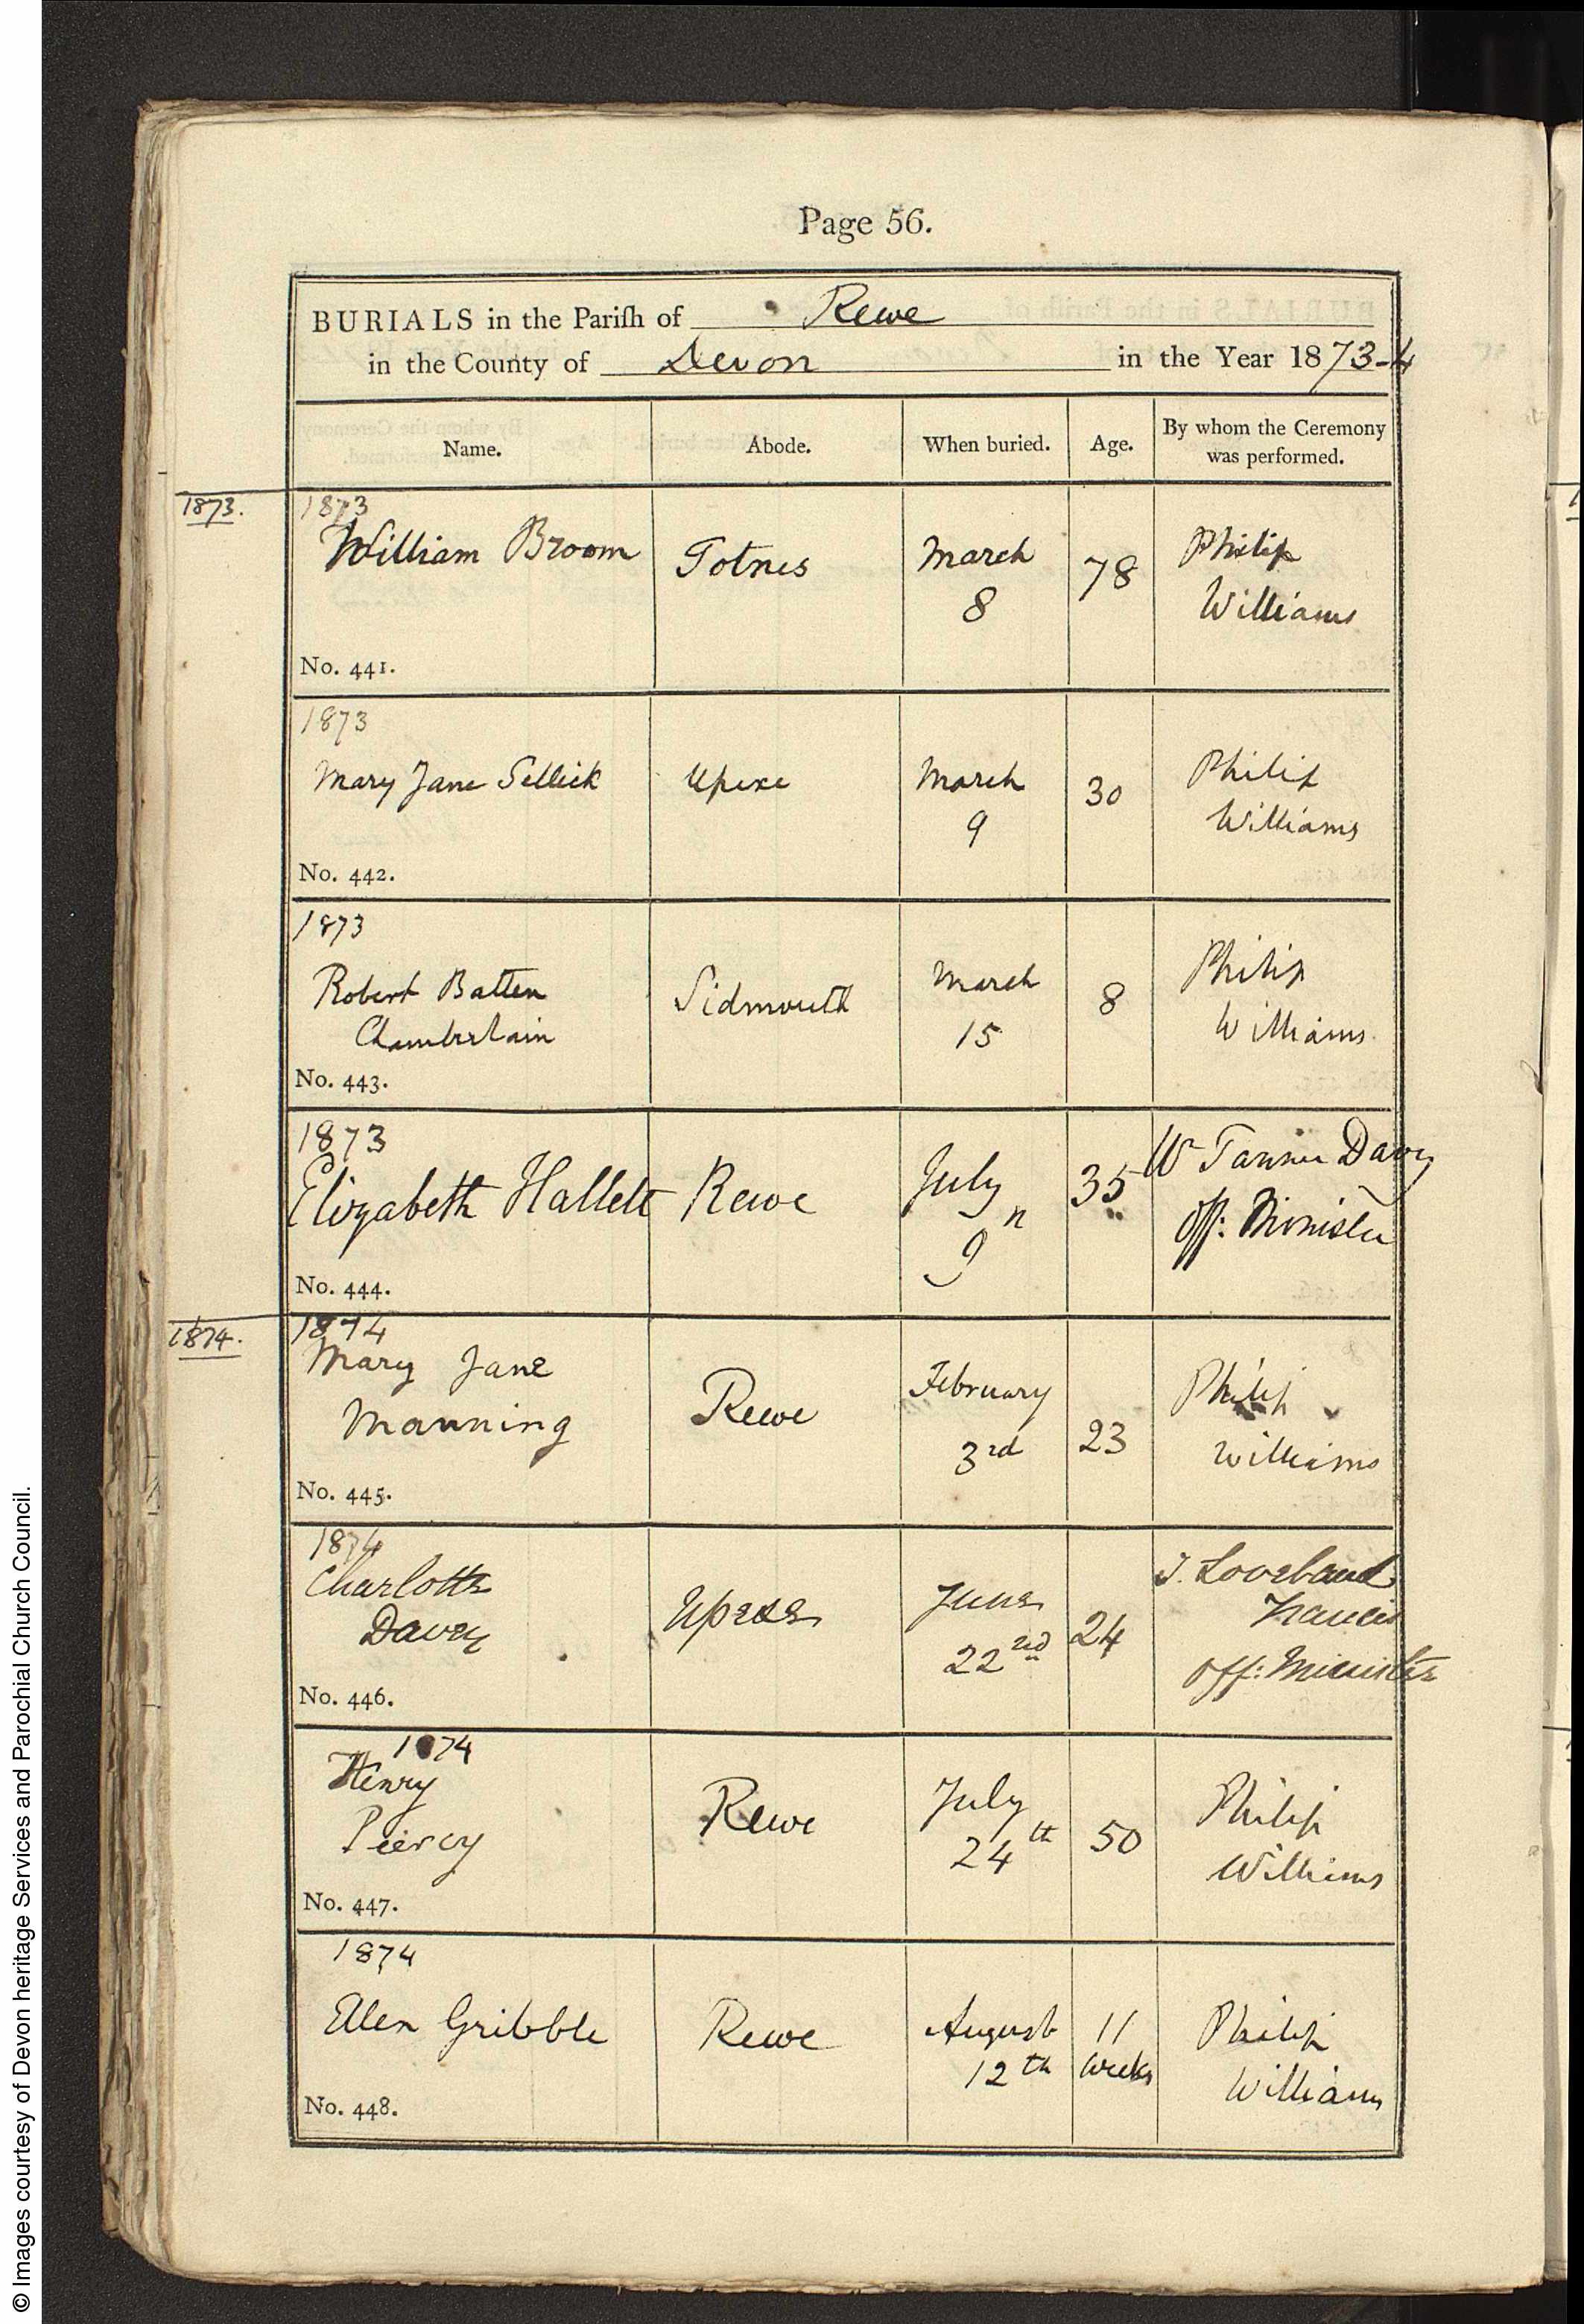 Page 56.
BURIALS in the Pariſh of Rewe
in the County of Devon in the Year 1873-4
Name. Abode. When buried. Age. By whom the Ceremony was performed.
1873.
1873
William Broom Totnes March 8 78 Philip Williams
No. 441.
1873
Mary Jane Sellick Upexe March 9 30 Philip Williams
No. 442.
1873
Robert Batten Chamberlain Sidmouth March 15 8 Philip Williams
No. 443.
1873
Elizabeth Hallett Rewe July 9 35 W Tanner Davy Off: Minister
No. 444.
1874.
1874
Mary Jane Manning Rewe February 3rd 23 Philip Williams
No. 445.
1874
Charlotte Davey Upexe June 22nd 24 J. Loveband Francis Off: Minister
No. 446.
1874
Henry Piercy Rewe July 24th 50 Philip Williams
No. 447.
1874
Ellen Gribble Rewe August 12th 11 weeks Philip Williams
No. 448.
© Images courtesy of Devon heritage Services and Parochial Church Council.